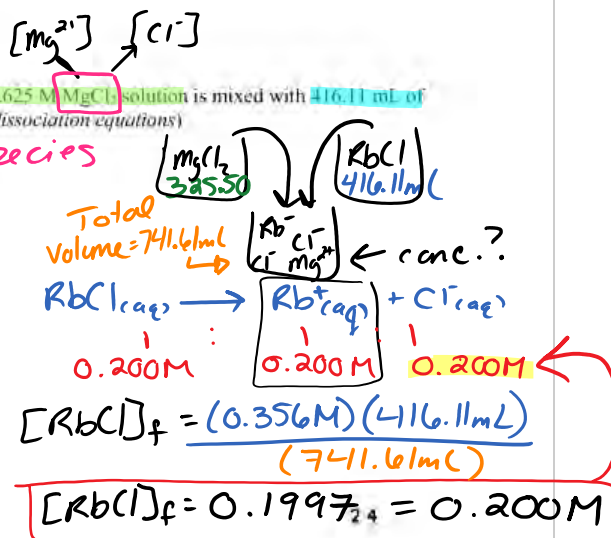 [Mg²⁺] [Cl⁻]
.625 M MgCl₂ solution is mixed with 416.11 mL of
dissociation equations)
ecies
MgCl₂
325.50
RbCl
416.11mL
Total
Volume=741.61mL
Rb⁻ Cl⁻
Cl⁻ Mg²⁺
← conc.?
RbCl(aq) → Rb⁺(aq) + Cl⁻(aq)
1 : 1 : 1
0.200M 0.200M 0.200M
[RbCl]f = (0.356M)(416.11mL)
(741.61mL)
[RbCl]f = 0.1997₂₄ = 0.200M